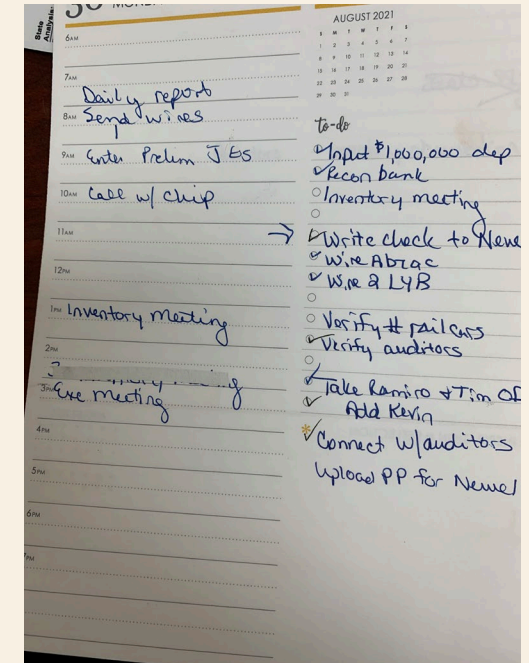 State
Analysis
30 MONDAY
6AM
7AM
Daily report
8AM Send wires
9AM Enter Prelim JEs
10AM Call w/ Chip
11AM
12PM
1PM Inventory Meeting
2PM
3PM Exe meeting
4PM
5PM
6PM
7PM
AUGUST 2021
S M T W T F S
1 2 3 4 5 6 7
8 9 10 11 12 13 14
15 16 17 18 19 20 21
22 23 24 25 26 27 28
29 30 31
to-do
Input $1,000,000 dep
Recon bank
Inventory meeting
Write check to Newe
Wire Abrac
Wire 2 LYB
Verify # railcars
Verify auditors
Take Ramiro & Tim Of
Add Kevin
Connect w/auditors
Upload PP for Newel